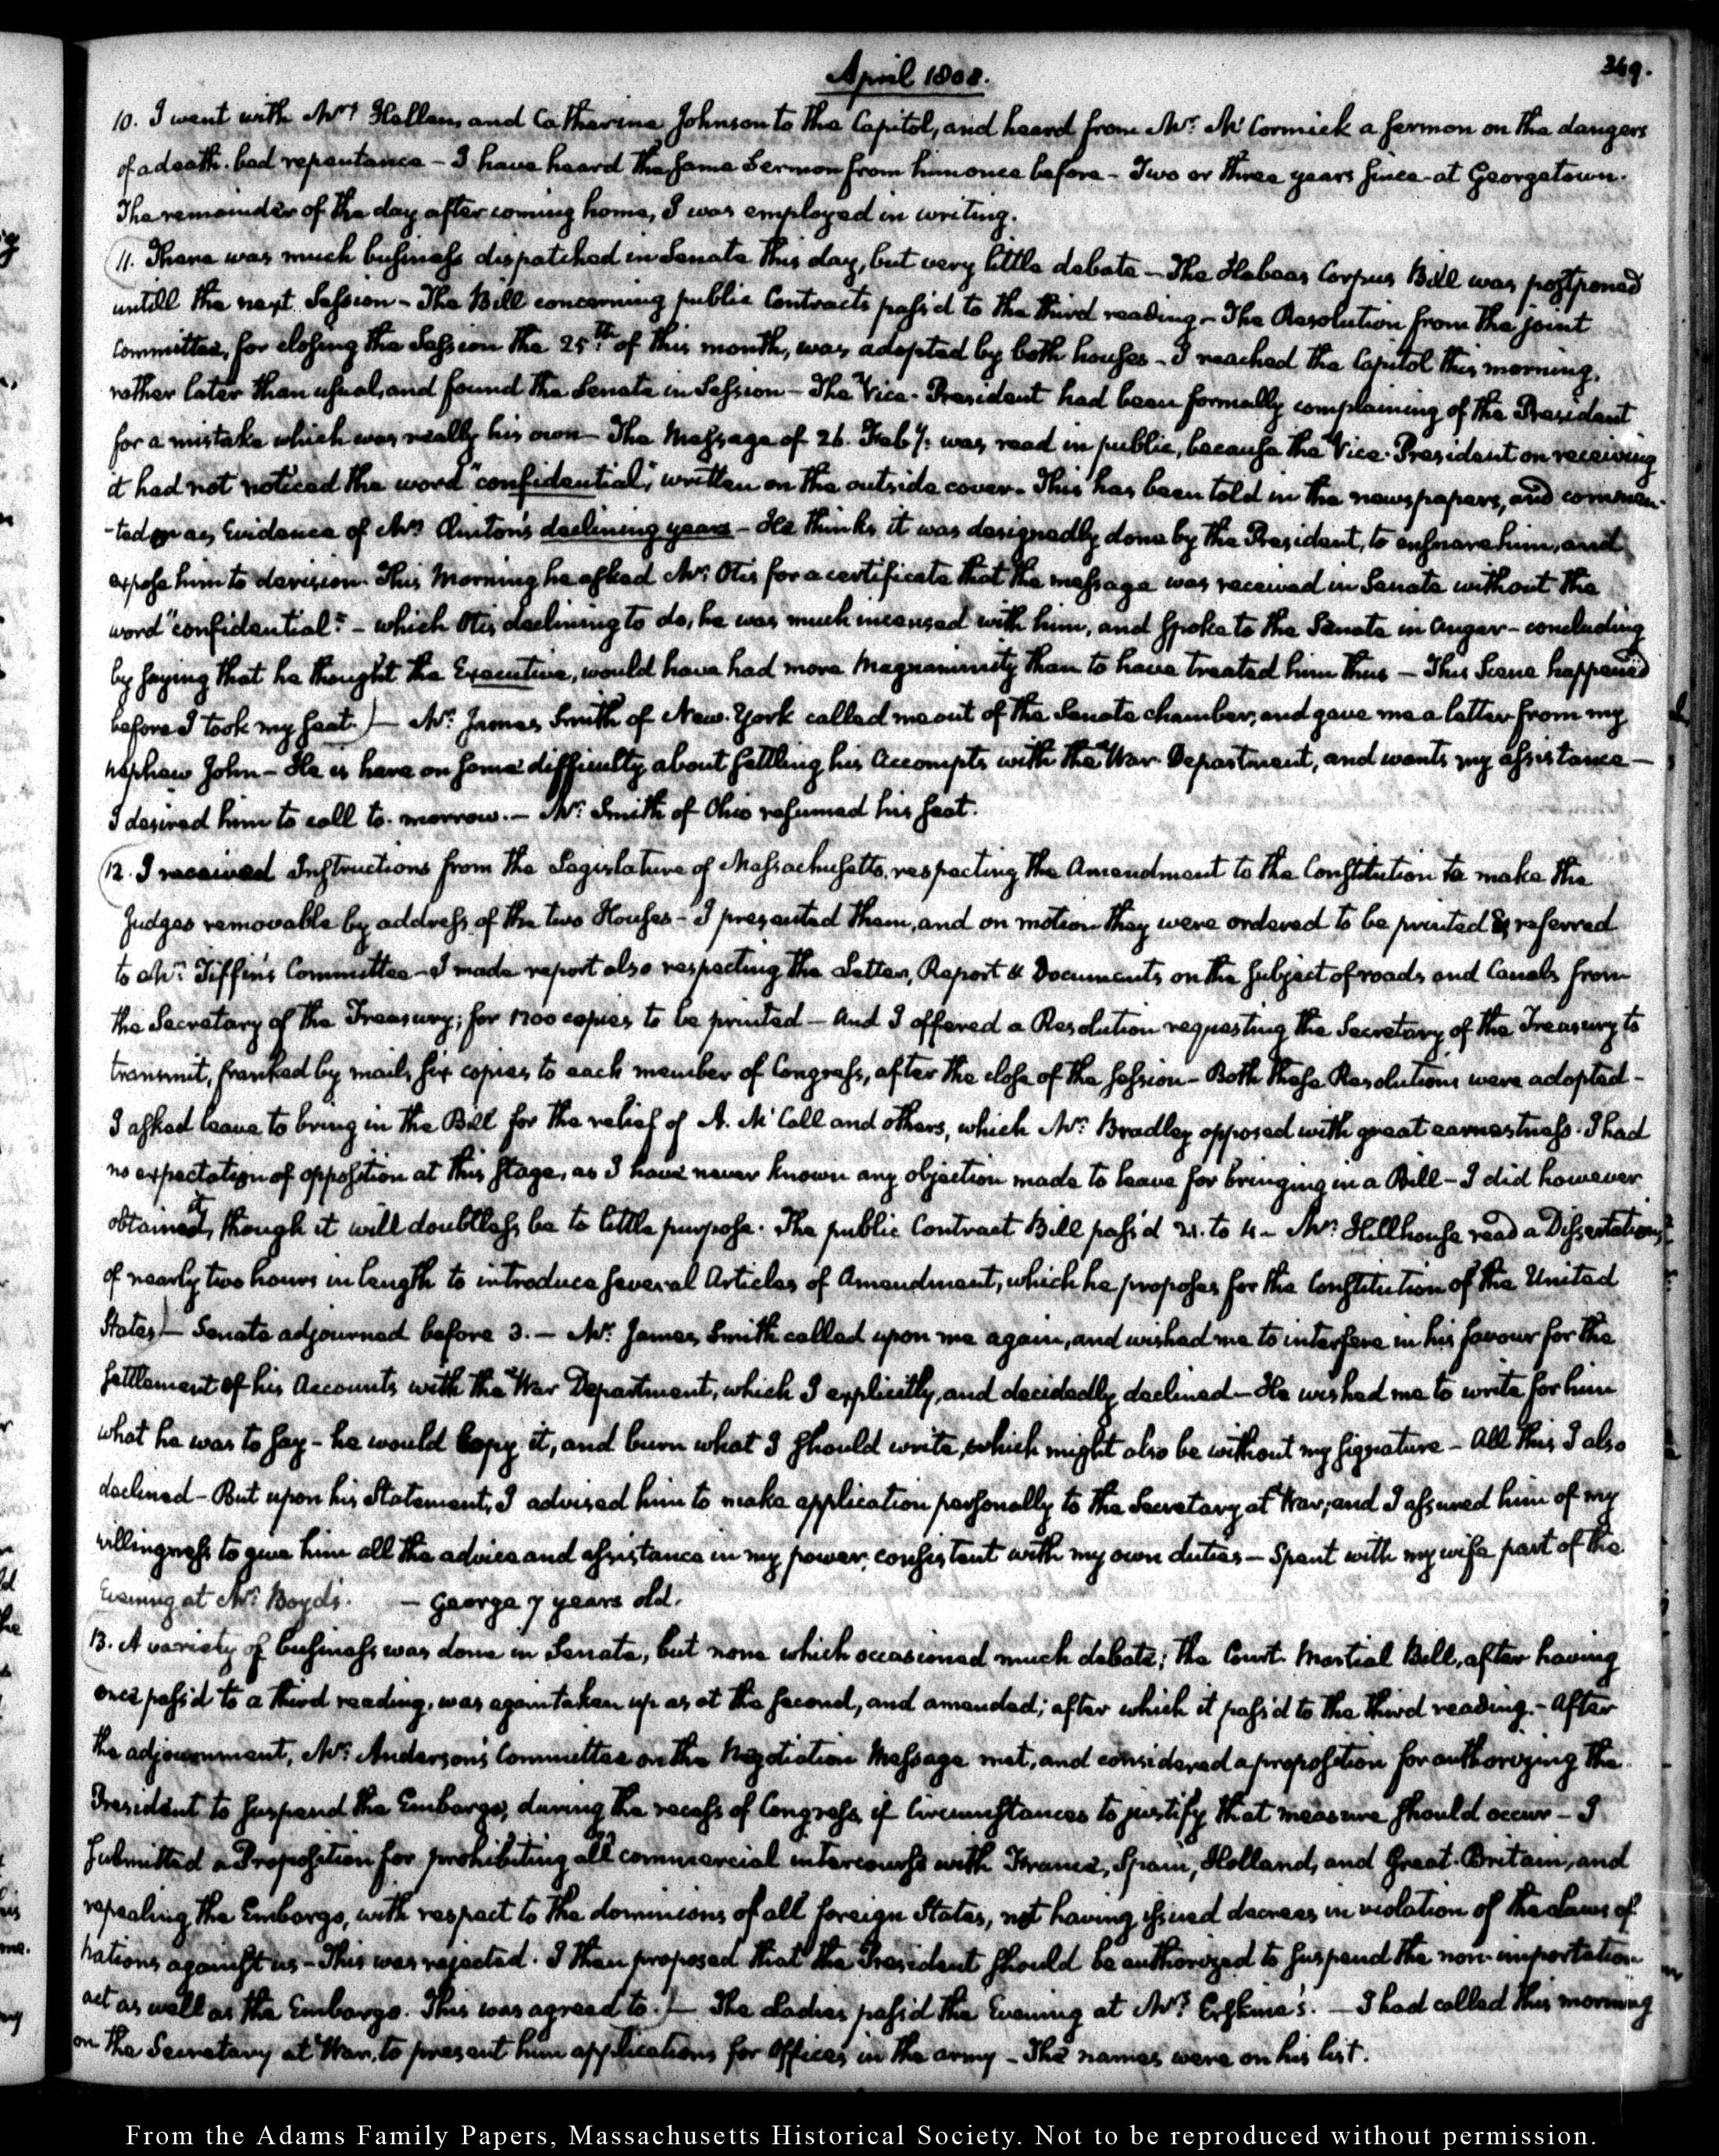 April 1808.
349.
10. I went with Mrs. Hellen, and Catherine Johnson to the Capitol, and heard from Mr. Mc.Cormick a sermon on the dangers
of a death-bed repentance – I have heard the same Sermon from him once before – Two or three years since at Georgetown.
The remainder of the day after coming home, I was employed in writing.
11. There was much business dispatched in Senate this day, but very little debate – The Habeas Corpus Bill was postponed
untill the next Session – The Bill concerning public Contracts pass'd to the third reading – The Resolution from the joint
Committee, for closing the Session the 25th. of this month, was adopted by both houses – I reached the Capitol this morning,
rather later than usual, and found the Senate in Session – The Vice-President had been formally complaining of the President
for a mistake which was really his own – The Message of 26. Feby: was read in public, because the Vice-President on receiving
it had not noticed the word "confidential," written on the outside cover – This has been told in the newspapers, and commen-
-ted on as Evidence of Mr. Clinton's declining years – He thinks it was designedly done by the President, to ensnare him, and
expose him to derision. This Morning he asked Mr. Otis for a certificate that the message was received in Senate without the
word "confidential" – which Otis declining to do, he was much incensed with him, and spoke to the Senate in Anger – concluding
by saying that he thought the Executive, would have had more Magnanimity than to have treated him thus – This Scene happened
before I took my seat.) – Mr. James Smith of New-York called me out of the Senate chamber, and gave me a letter from my
nephew John – He is here on some difficulty about settling his Accompts with the War-Department, and wants my assistance –
I desired him to call to-morrow. – Mr. Smith of Ohio resumed his seat.
12. I received Instructions from the Legislature of Massachusetts, respecting the Amendment to the Constitution to make the
Judges removable by address of the two Houses – I presented them, and on motion they were ordered to be printed & referred
to Mr. Tiffin's Committee – I made report also respecting the Letter, Report & Documents on the subject of roads and Canals from
the Secretary of the Treasury; for 1200 copies to be printed – And I offered a Resolution requesting the Secretary of the Treasury to
transmit, franked by mail, six copies to each member of Congress, after the close of the session – Both these Resolutions were adopted –
I asked leave to bring in the Bill for the relief of A. Mc.Call and others, which Mr. Bradley opposed with great earnestness. I had
no expectation of opposition at this stage, as I have never known any objection made to leave for bringing in a Bill – I did however
obtain it, though it will doubtless be to little purpose. The public Contract Bill pass'd 21. to 4 – Mr. Hillhouse read a Dissertation,
of nearly two hours in length to introduce several Articles of Amendment, which he proposes for the Constitution of the United
States) – Senate adjourned before 3. – Mr. James Smith called upon me again, and wished me to interfere in his favour for the
settlement of his Accounts with the War Department, which I explicitly, and decidedly declined – He wished me to write for him
what he was to say – he would copy it, and burn what I should write, which might also be without my signature – All this I also
declined – But upon his Statement, I advised him to make application personally to the Secretary at War, and I assured him of my
willingness to give him all the advice and assistance in my power, consistent with my own duties – Spent with my wife part of the
Evening at Mr. Boyd's. – George 7 years old.
13. A variety of business was done in Senate, but none which occasioned much debate; the Court-Martial Bill, after having
once pass'd to a third reading, was again taken up as at the second, and amended; after which it pass'd to the third reading. – After
the adjournment, Mr. Anderson's Committee on the Negotiation Message met, and considered a proposition for authorizing the
President to suspend the Embargo, during the recess of Congress, if Circumstances to justify that measure should occur – I
submitted a Proposition for prohibiting all commercial intercourse with France, Spain, Holland, and Great-Britain, and
repealing the Embargo, with respect to the dominions of all foreign States, not having issued decrees in violation of the Laws of
nations against us – This was rejected. I then proposed that the President should be authorized to suspend the non-importation
act as well as the Embargo. This was agreed to.) – The Ladies pass'd the Evening at Mrs. Erskine's. – I had called this morning
on the Secretary at War, to present him applications for Offices in the army – The names were on his list.
From the Adams Family Papers, Massachusetts Historical Society. Not to be reproduced without permission.